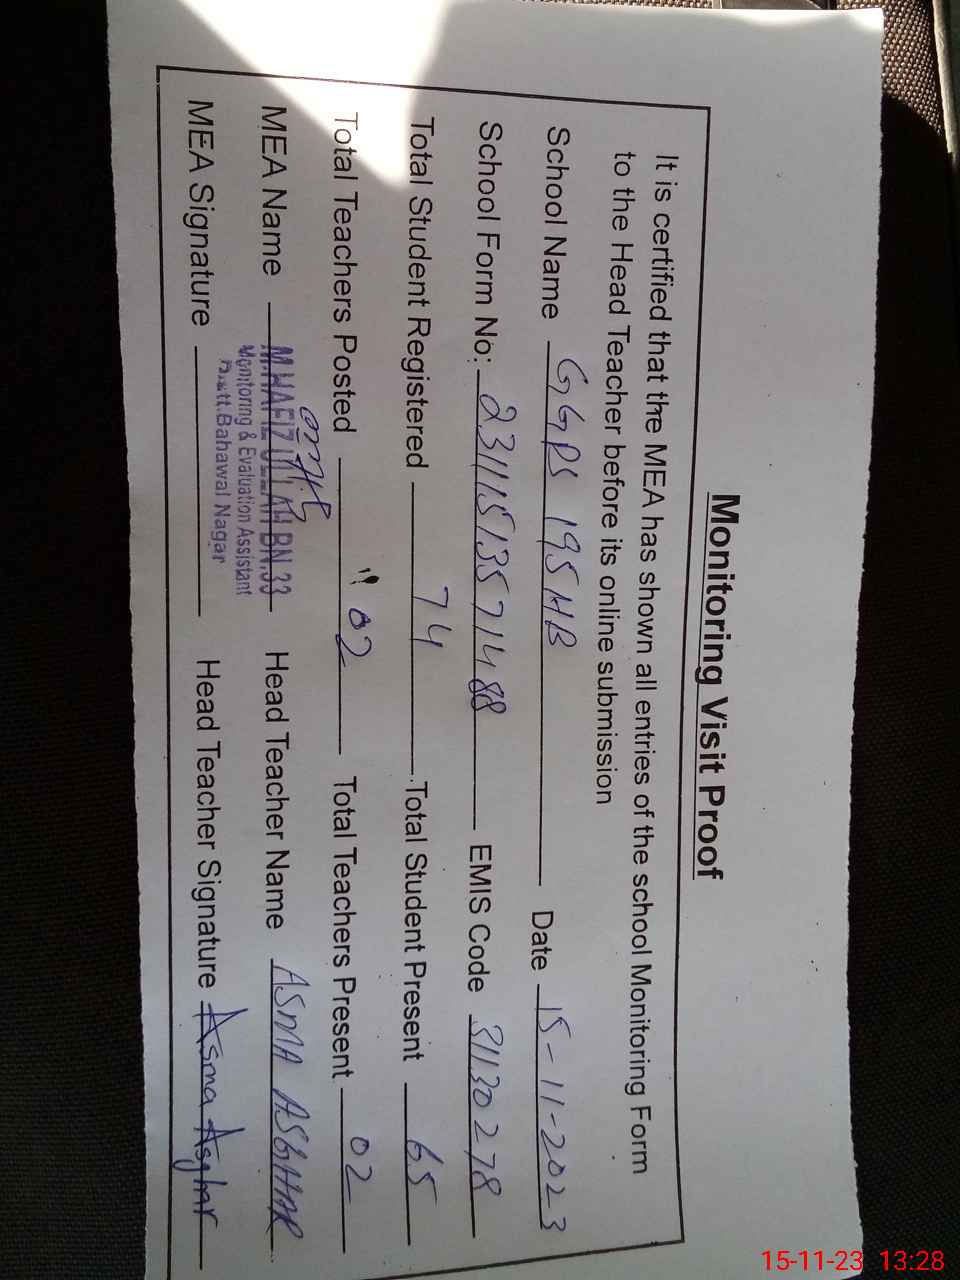 Monitoring Visit Proof
It is certified that the MEA has shown all entries of the school Monitoring Form
to the Head Teacher before its online submission
School Name GGPS 195HB Date 15-11-2023
School Form No: 23111513571488 EMIS Code 31130278
Total Student Registered 74 Total Student Present 65
Total Teachers Posted 02 Total Teachers Present 02
MEA Name M.HAFIZ ULLAH BN.33 Head Teacher Name ASMA ASGHAR
Monitoring & Evaluation Assistant
Distt.Bahawal Nagar
MEA Signature Head Teacher Signature Asma Asghar
15-11-23 13:28